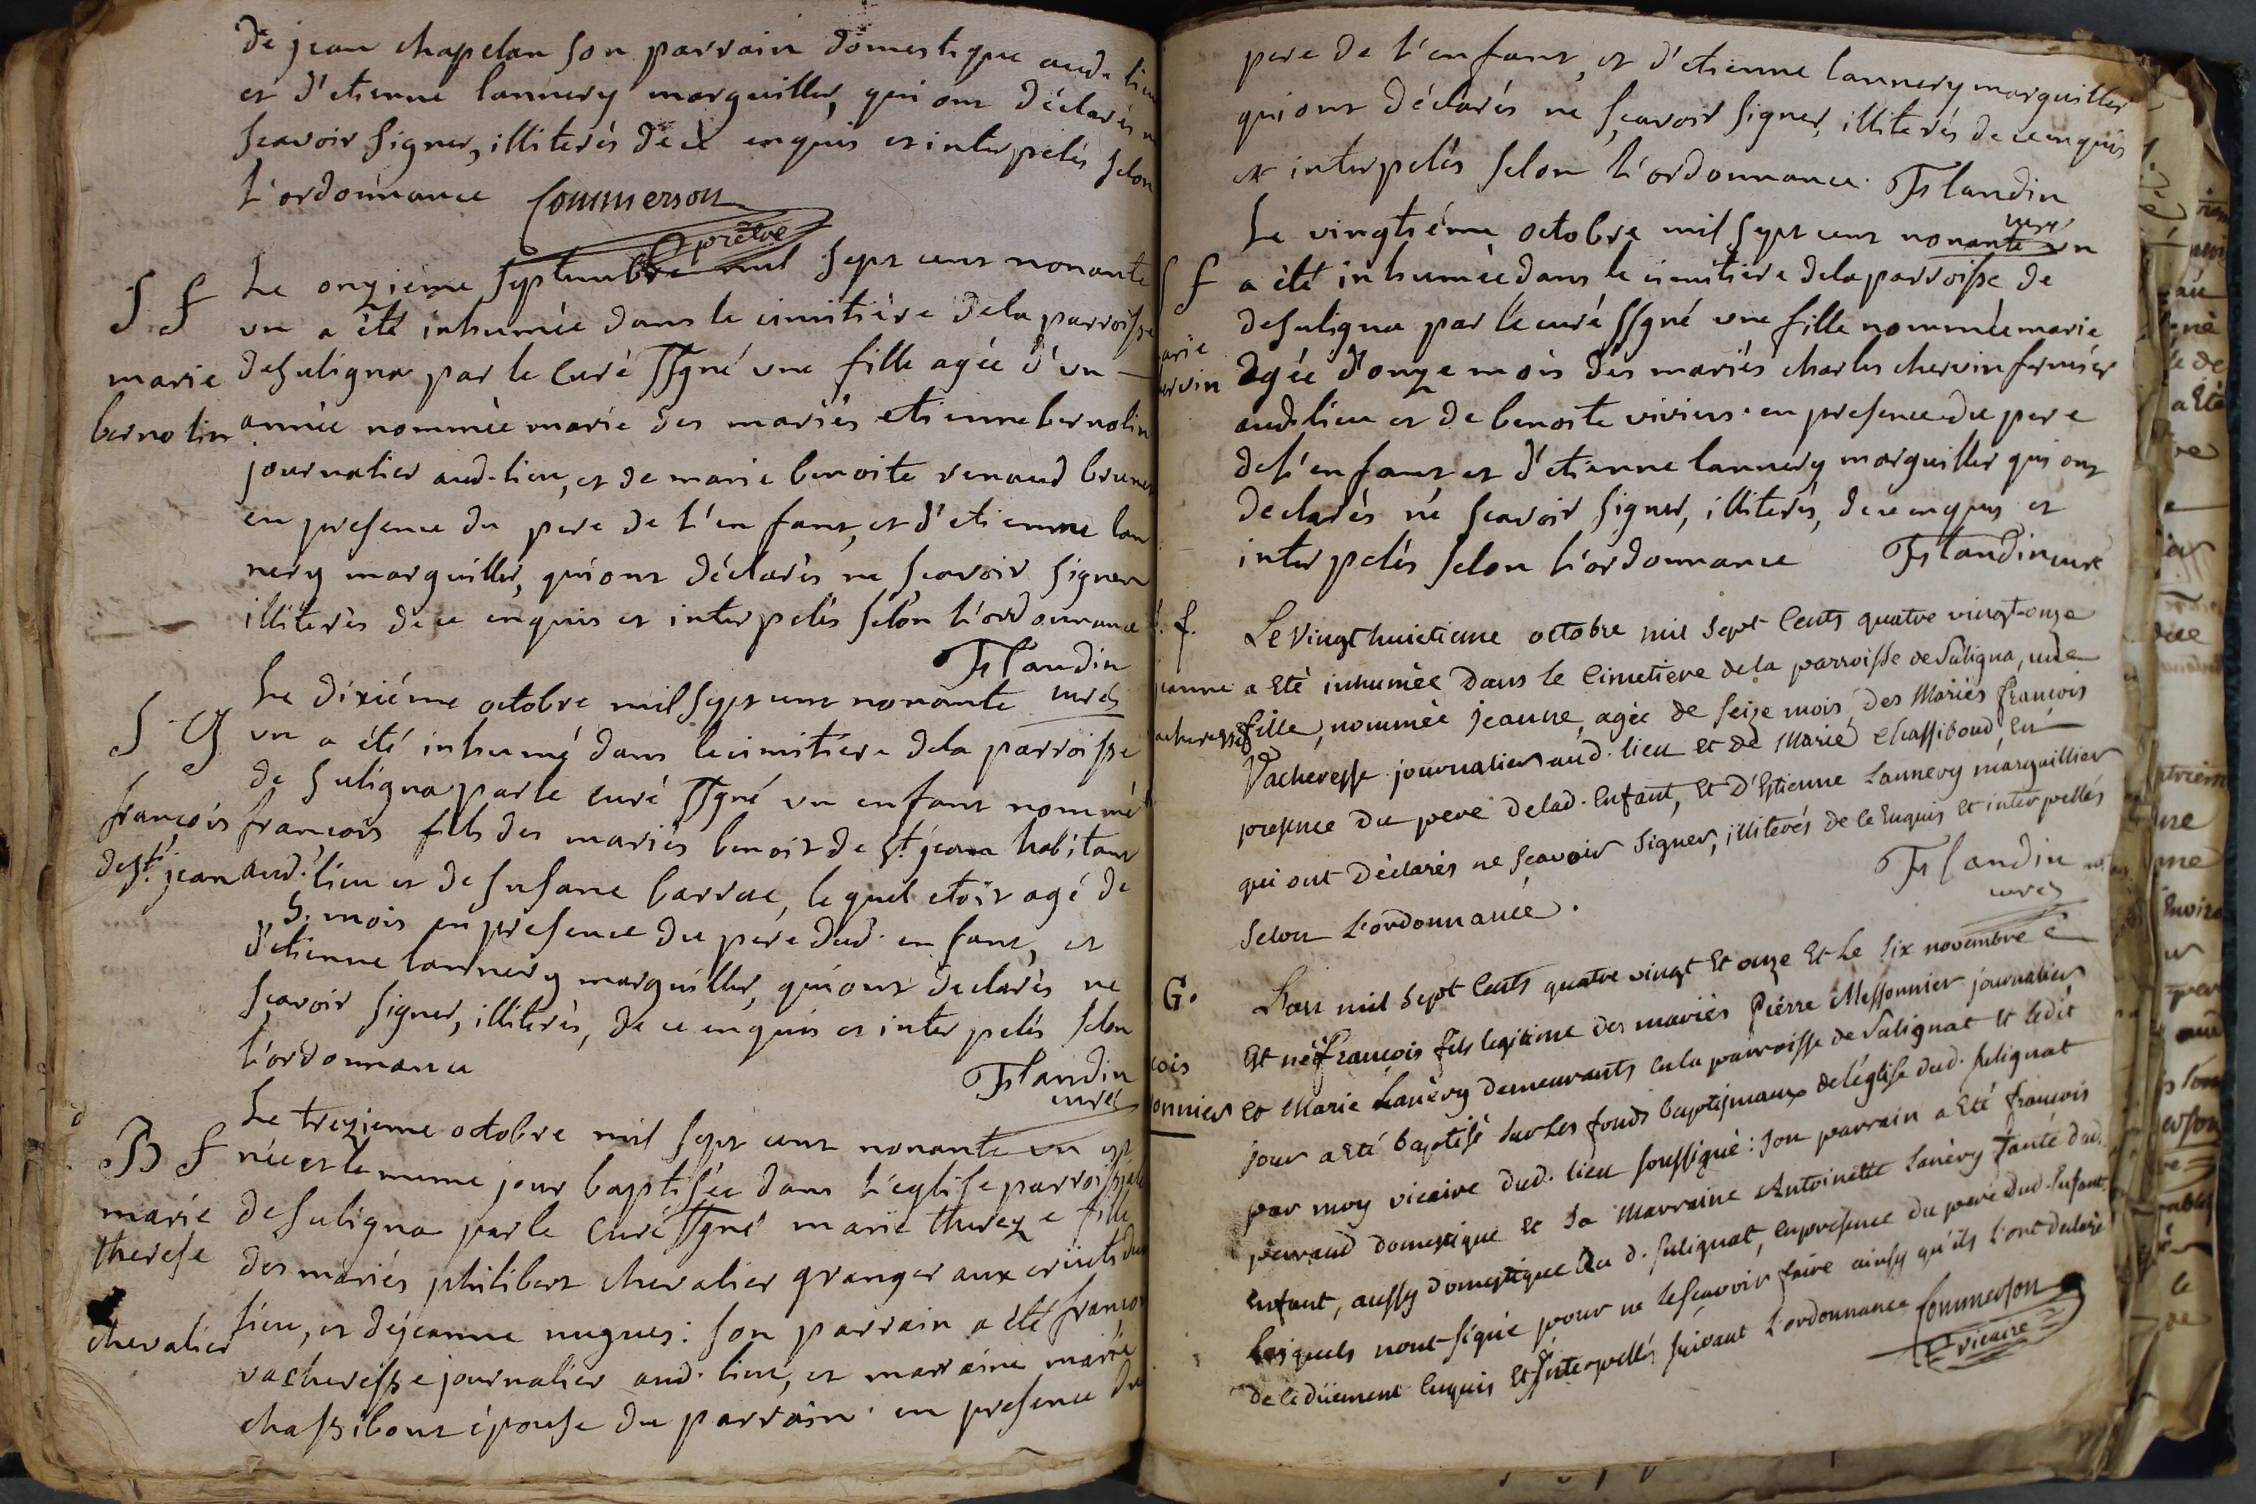 de jean chapelan son parrain domestique aud. lieu
et d'etienne lannery marguiller, qui ont déclarés ne
scavoir signer, illiterés de ce enquis et interpelés selon
l'ordonnance Commerson
prêtre
S f
Le onzieme septembre mil sept cent nonante
un a été inhumée dans le cimitière dela parroisse
marie desuligna par le Curé ssgné une fille agée d'un
bernolin année nommée marie des mariés etienne bernolin
journalier aud. lieu, et de marie benoite renaud brunet
en presence du pere de l'enfant, et d'etienne lan
nery marguiller, qui ont déclarés ne scavoir signer
illiterés de ce enquis et interpelés selon l'ordonnance
Flandin
curé
S G
Le dixiéme octobre mil sept cent nonante
un a été inhumé dans le cimitiere dela parroisse
de suligna par le curé ssgné un enfant nommé
françois françois fils des mariés benoit de st. jean habitant
de st. jean aud. lieu et de susane barrac, lequel etoit agé de
5. mois en presence du pere dud. enfant, et
d'etienne lannery marguiller, qui ont declarés ne
scavoir signer, illiterés, de ce enquis et interpelés selon
l'ordonnance
Flandin
curé
Le trezieme octobre mil sept cent nonante un est
B f née et le meme jour baptisée dans l'eglise parroissiale
marie desuligna par le Curé ssgné marie thereze fille
therese des mariés philibert chevalier granger aux cruets dud.
lieu, et de jeanne nugues: son parrain a été françois
chevalier vacheresse journalier aud. lieu, et marraine marie
chassibout épouse du parrain. en presence du
pere de l'enfant, et d'etienne lannery marguiller
qui ont déclarés ne scavoir signer, illiterés de ce enquis
et interpelés selon l'ordonnance. Flandin
curé
Le vingtiéme octobre mil sept cent nonante un
f a été inhumée dans le cimitière dela parroisse de
desuligna par le curé ssgné une fille nommée marie
agée d'onze mois des mariés charles chervin fermier
aud. lieu et de benoite viviers. en presence du pere
de l'enfant et d'etienne lannery marguiller qui ont
declarés né scavoir signer, illiterés, de ce enquis et
interpelés selon l'ordonnance Flandin curé
f. Le Vingt huictieme octobre mil sept Cents quatre vingt-onze
jeanne a Eté inhumée Dans le Cimetiere dela parroisse de Suligna, une
fille, nommée jeanne, agée de seize mois, des Mariés françois
Vacheresse journalier aud. lieu et de Marie chassiboud, En
presence Du pere delad. Enfant, Et D'Estienne Lannery marguillier
qui ont Déclarés ne scavoir signer, illiterés de ce Enquis Et interpellés
Selon L'ordonnance.
Flandin
curé
G. L'an mil sept Cents quatre vingt Et onze Et Le six novembre
Est né françois fils legitime des mariés Pierre Messonnier journalier
et Marie Lanery demeurants enla parroisse de Sulignat Et Ledit
jour a Eté baptisé Sur Les fonds baptismaux del'église dud. sulignat
par moy vicaire dud. lieu soussigné: son parrain a Eté françois
perraud domestique Et sa Marraine Antoinette Lanèry Tante dud.
Enfant, aussy domestique du d. sulignat, en presence du pere dud. Enfant.
Lesquels n'ont signé pour ne le scavoir faire ainsy qu'ils l'ont declaré
de ce düement Enquis Et Interpellés suivant L'ordonnance Commerson
vicaire